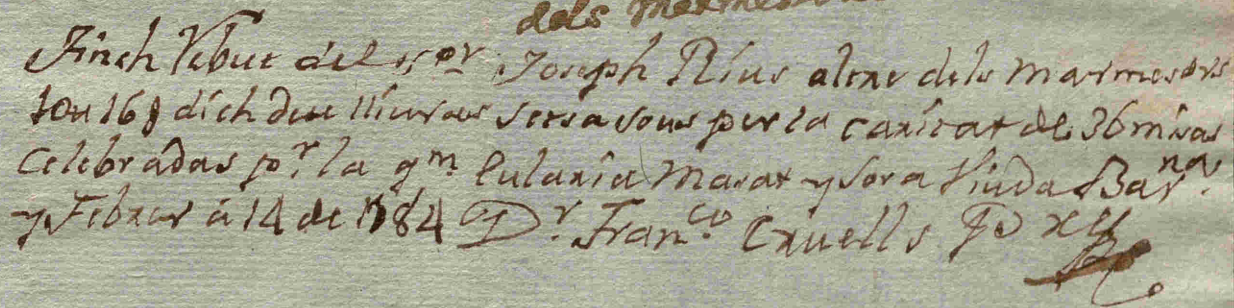 dels Marmesors
Tinch rebut del Sor. Joseph Rius altre dels Marmesors
10ll 16s dich deu lliuras setsa sous per la caritat de 36 misas
Celebradas pr. la qm. Eulalia Marat y Sora Viuda Barna.
y Febrer à 14 de 1784 Dr. Franco. Cruells